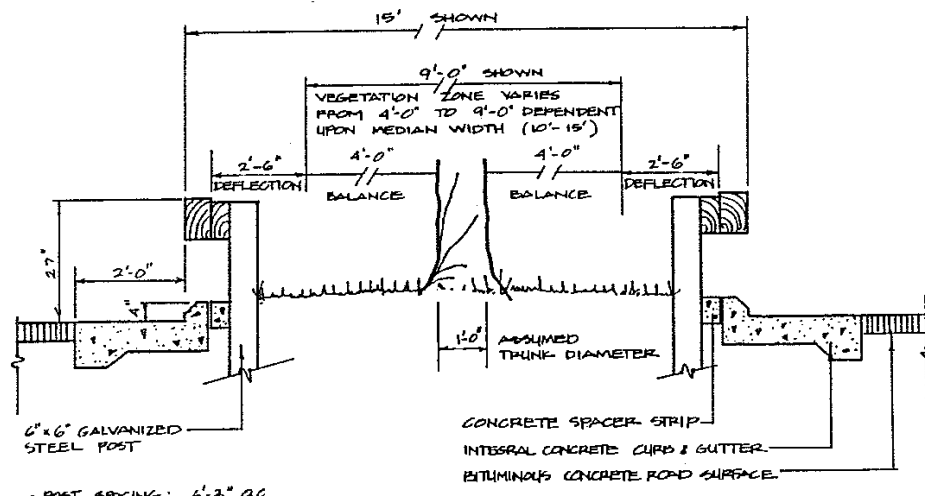 15' SHOWN
9'-0" SHOWN
VEGETATION ZONE VARIES
FROM 4'-0" TO 9'-0" DEPENDENT
UPON MEDIAN WIDTH (10'-15')
2'-6"
DEFLECTION
4'-0"
BALANCE
4'-0"
BALANCE
2'-6"
DEFLECTION
27"
2'-0"
4"
1'-0"
ASSUMED
TRUNK DIAMETER
6"x6" GALVANIZED
STEEL POST
CONCRETE SPACER STRIP
INTEGRAL CONCRETE CURB & GUTTER
BITUMINOUS CONCRETE ROAD SURFACE
POST SPACING: 6'-3" OC